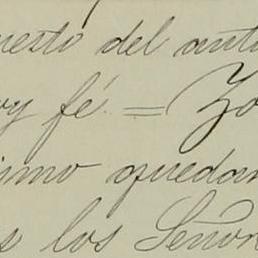 uesto del anto
oy fé. = Zo
ismo quedan
s los Señor